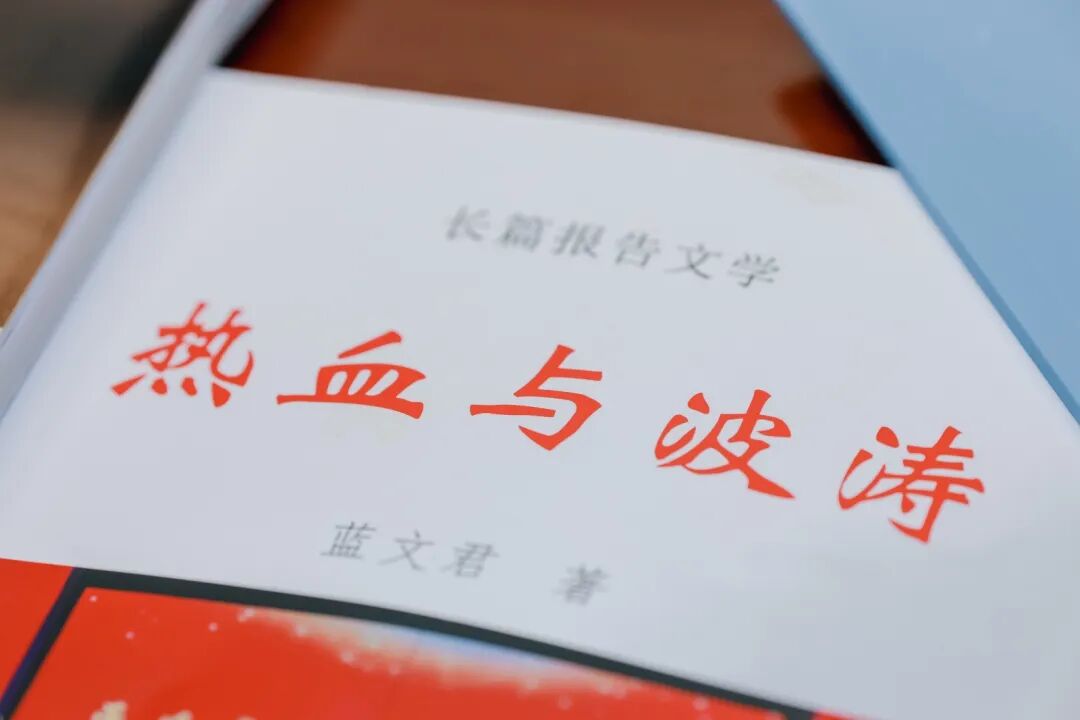 长篇报告文学
热血与波涛
蓝文君 著